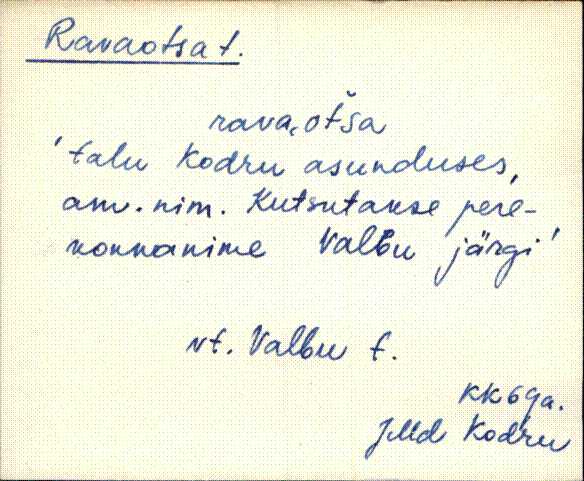 Ravaotsa t.
rava,otša
'talu Kodru asunduses,
am. nim. Kutsutakse pere-
konnanime Valbu järgi'
vt. Valbu t.
KK 69a.
JMd Kodru